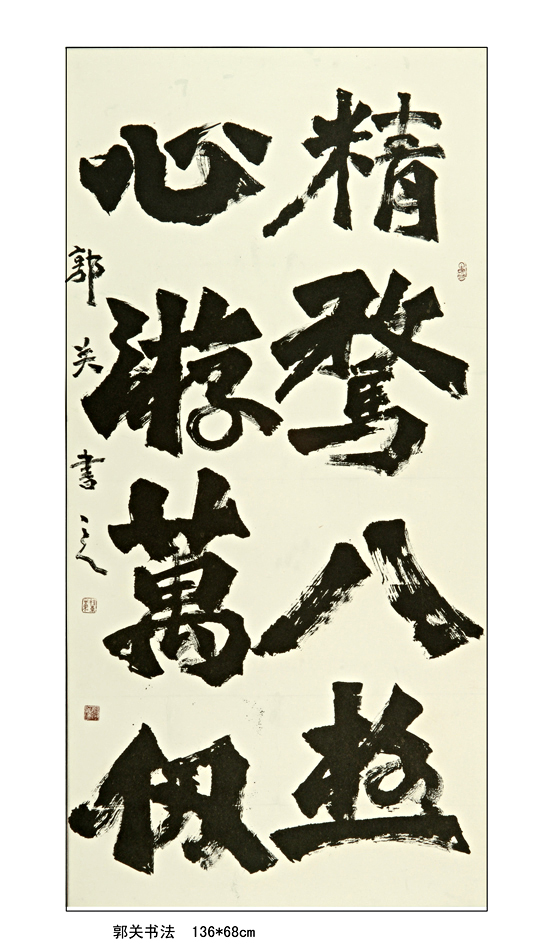 精骛八极
心游萬仞
郭关书之
郭关书法 136*68cm